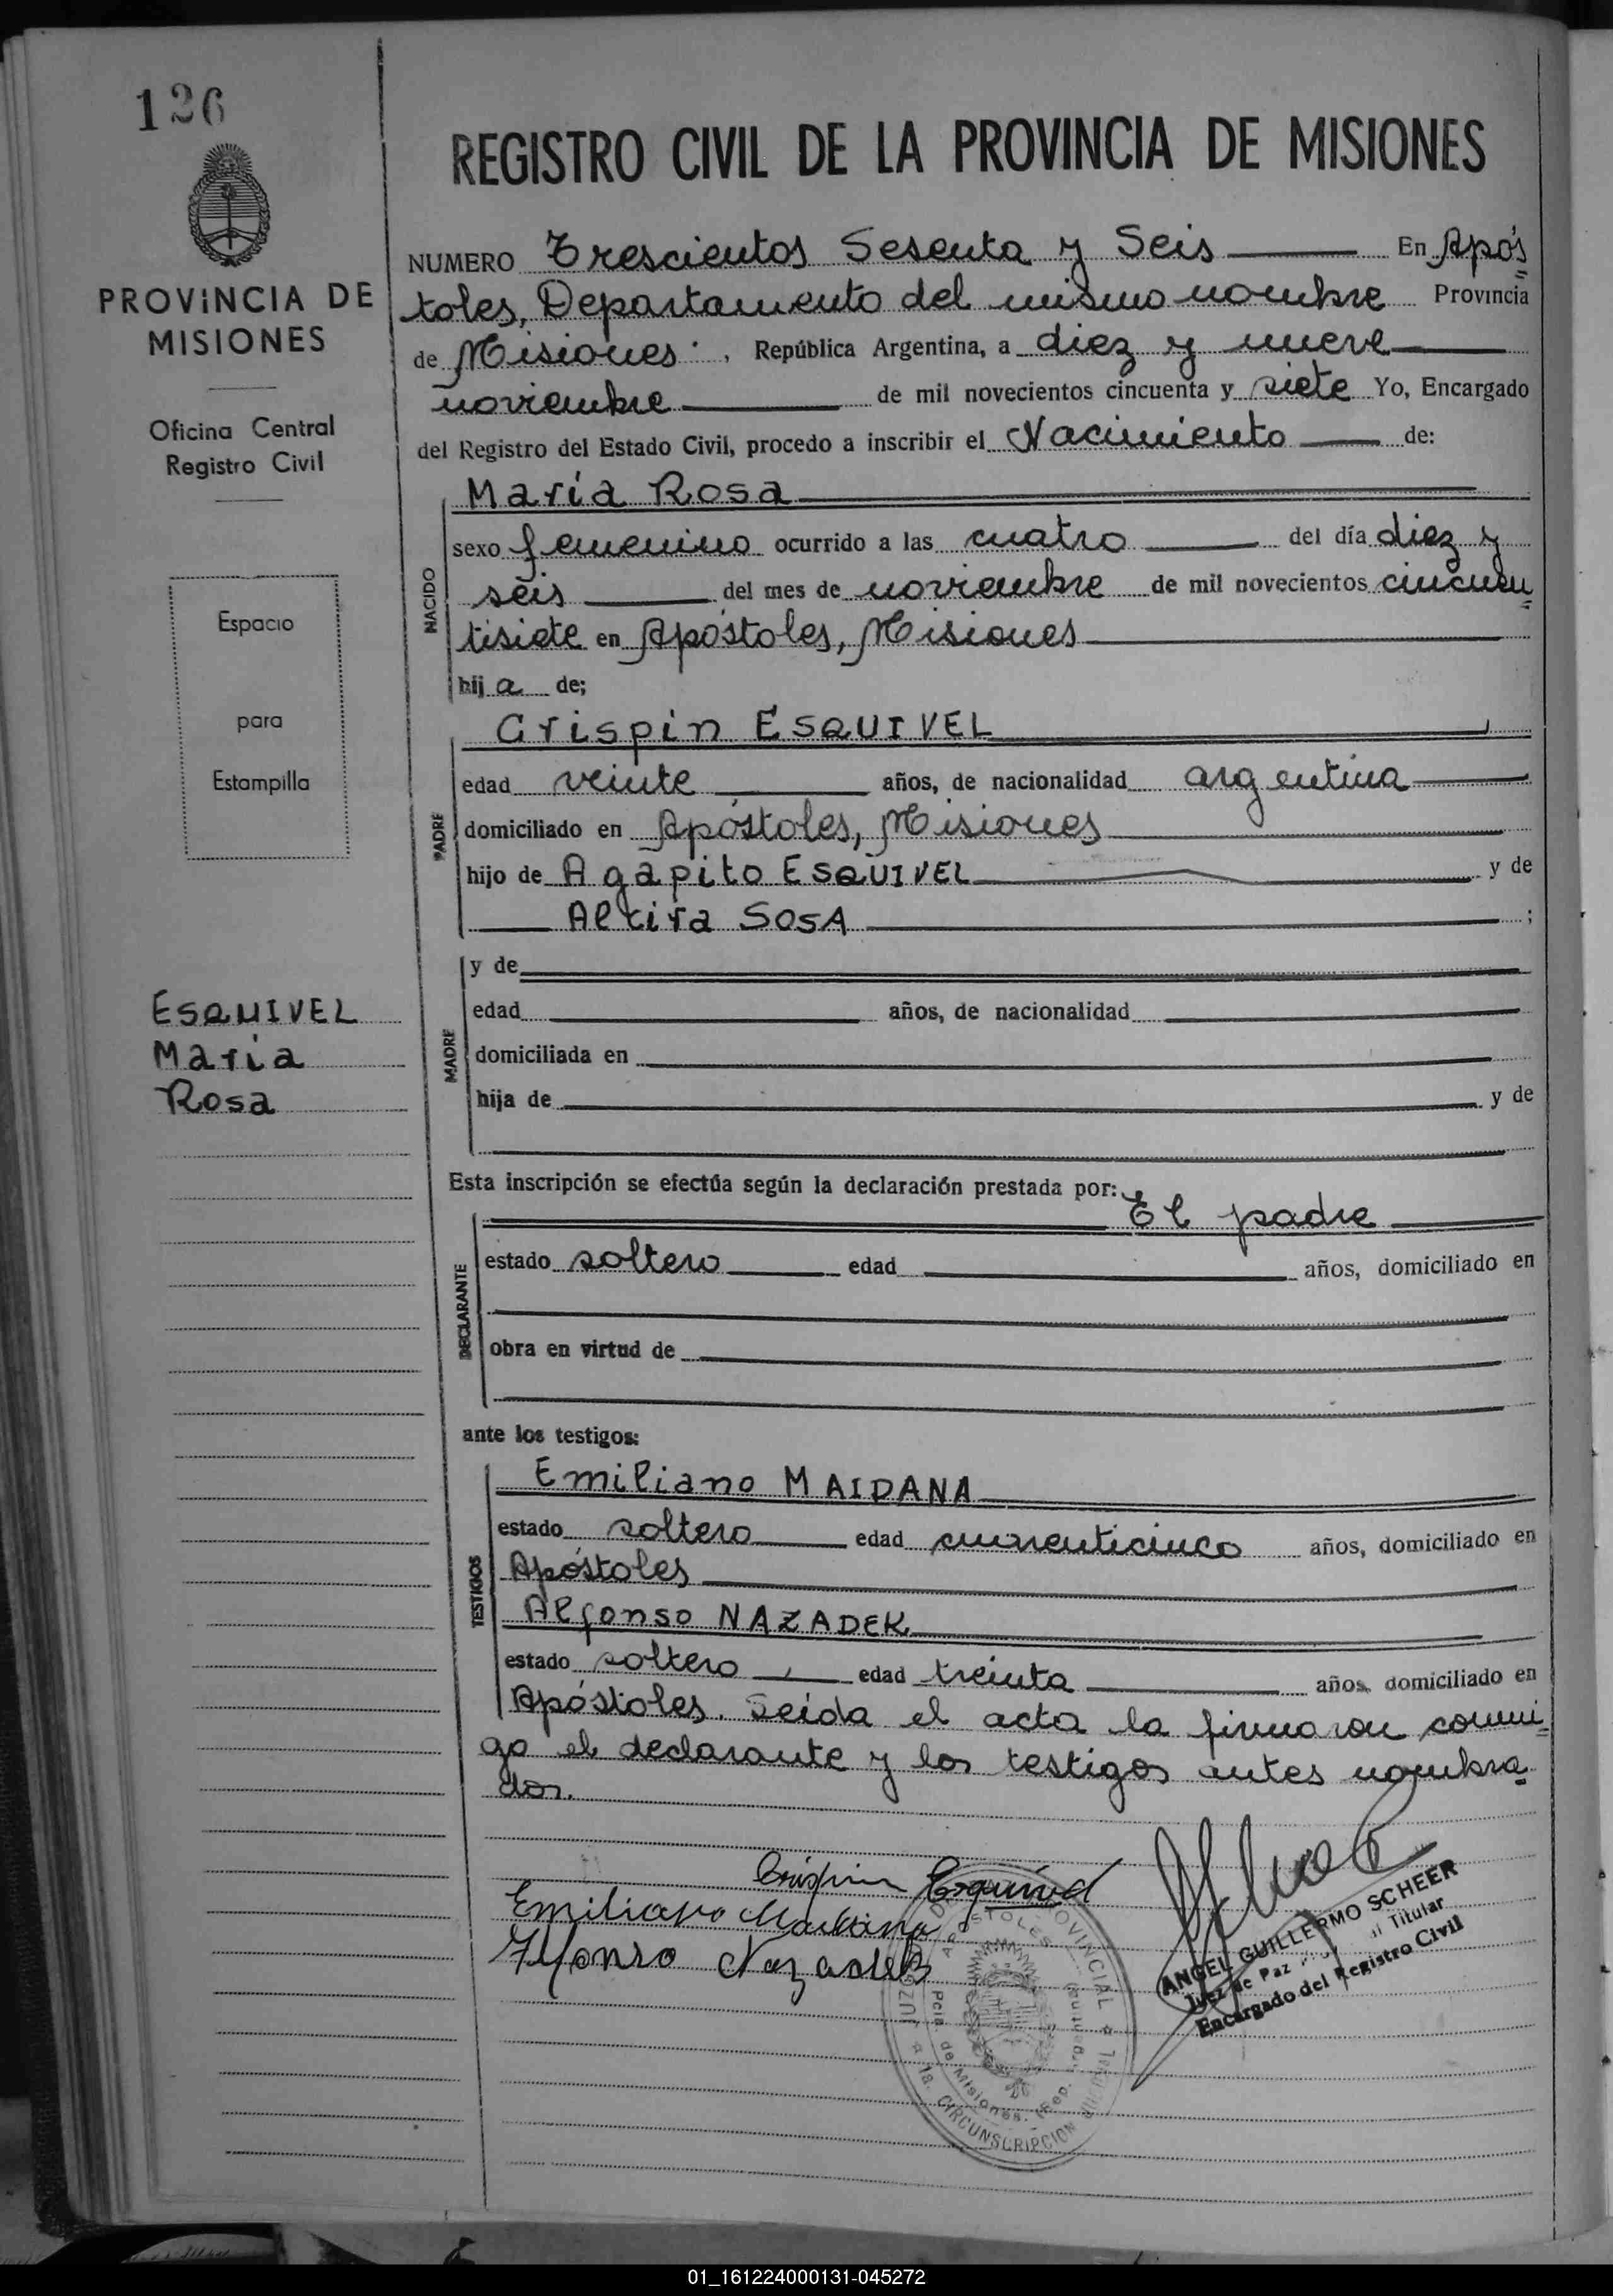 126
REGISTRO CIVIL DE LA PROVINCIA DE MISIONES
PROVINCIA DE
MISIONES
Oficina Central
Registro Civil
Espacio
para
Estampilla
ESQUIVEL
María
Rosa
NUMERO Trescientos Sesenta y Seis En Após
toles, Departamento del mismo nombre Provincia
de Misiones, República Argentina, a diez y nueve
noviembre de mil novecientos cincuenta y siete Yo, Encargado
del Registro del Estado Civil, procedo a inscribir el Nacimiento de:
María Rosa
NACIDO
sexo femenino ocurrido a las cuatro del día diez y
seis del mes de noviembre de mil novecientos cincuen
tisiete en Apóstoles, Misiones
hij a de;
Crispín ESQUIVEL
PADRE
edad veinte años, de nacionalidad argentina
domiciliado en Apóstoles, Misiones
hijo de Agapito ESQUIVEL y de
Alcira SOSA ;
MADRE
y de
edad años, de nacionalidad
domiciliada en
hija de y de
Esta inscripción se efectúa según la declaración prestada por:
El padre
DECLARANTE
estado soltero edad años, domiciliado en
obra en virtud de
ante los testigos:
TESTIGOS
Emiliano MAIDANA
estado soltero edad cuarenticinco años, domiciliado en
Apóstoles
Alfonso NAZADEK
estado soltero edad treinta años, domiciliado en
Apóstoles. Leída el acta la firmaron conmi
go el declarante y los testigos antes nombra
dos.
Crispín Esquivel
Emiliano Maidana
Alfonso Nazadek
ANGEL GUILLERMO SCHEER
Juez de Paz Titular
Encargado del Registro Civil
APOSTOLES
Pcia. de Misiones. (Rep. Argentina)
1a. CIRCUNSCRIPCION
01_161224000131-045272